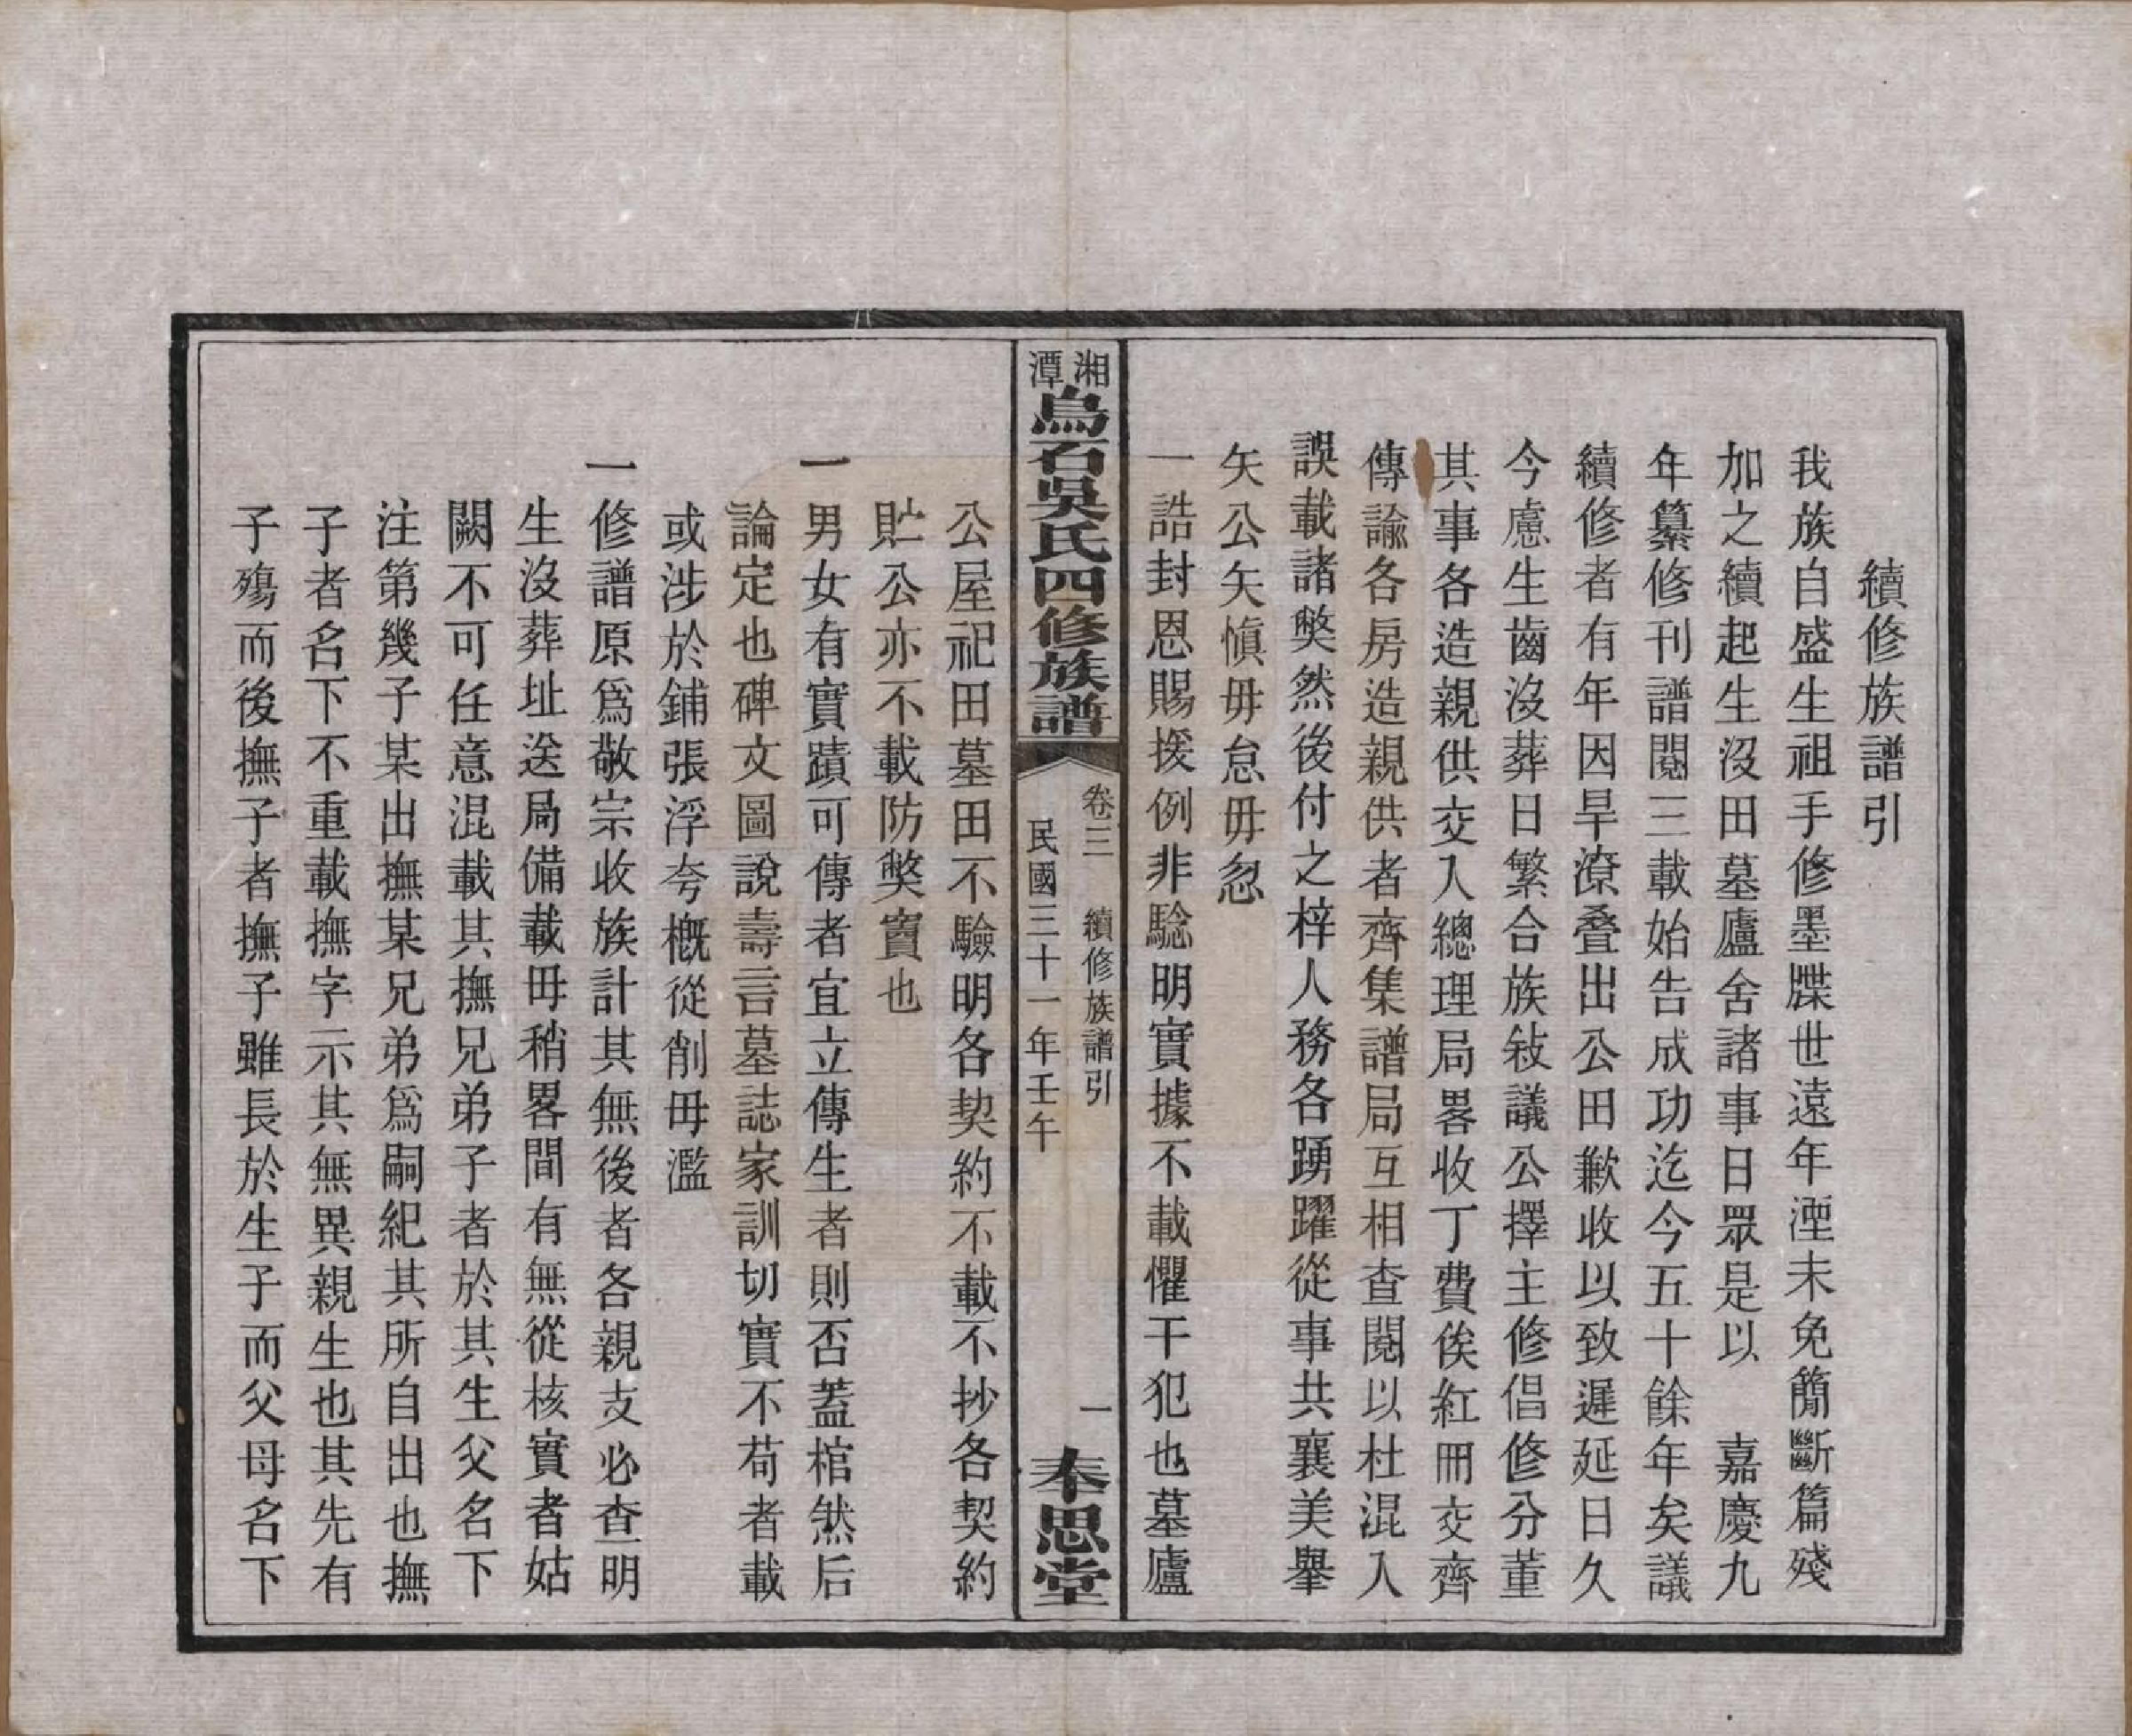 續修族譜引
我族自盛生祖手修墨牒世遠年湮未免簡斷篇殘
加之續起生沒田墓廬舍諸事日眾是以　嘉慶九
年纂修刊譜閱三載始告成功迄今五十餘年矣議
續修者有年因旱潦叠出公田歉收以致遲延日久
今慮生齒沒葬日繁合族敍議公擇主修倡修分董
其事各造親供交入總理局畧收丁費俟紅冊交齊
傳諭各房造親供者齊集譜局互相查閱以杜混入
誤載諸弊然後付之梓人務各踴躍從事共襄美舉
矢公矢慎毋怠毋忽
一誥封恩賜援例非騐明實據不載懼干犯也墓廬
湘潭烏石吳氏四修族譜
卷三　續修族譜引　一
民國三十一年壬午
奉思堂
公屋祀田墓田不驗明各契約不載不抄各契約
貯公亦不載防弊竇也
一男女有實蹟可傳者宜立傳生者則否蓋棺然后
論定也碑文圖說壽言墓誌家訓切實不苟者載
或涉於鋪張浮夸概從削毋濫
一修譜原爲敬宗收族計其無後者各親支必查明
生沒葬址送局備載毋稍畧間有無從核實者姑
闕不可任意混載其撫兄弟子者於其生父名下
注第幾子某出撫某兄弟爲嗣紀其所自出也撫
子者名下不重載撫字示其無異親生也其先有
子殤而後撫子者撫子雖長於生子而父母名下